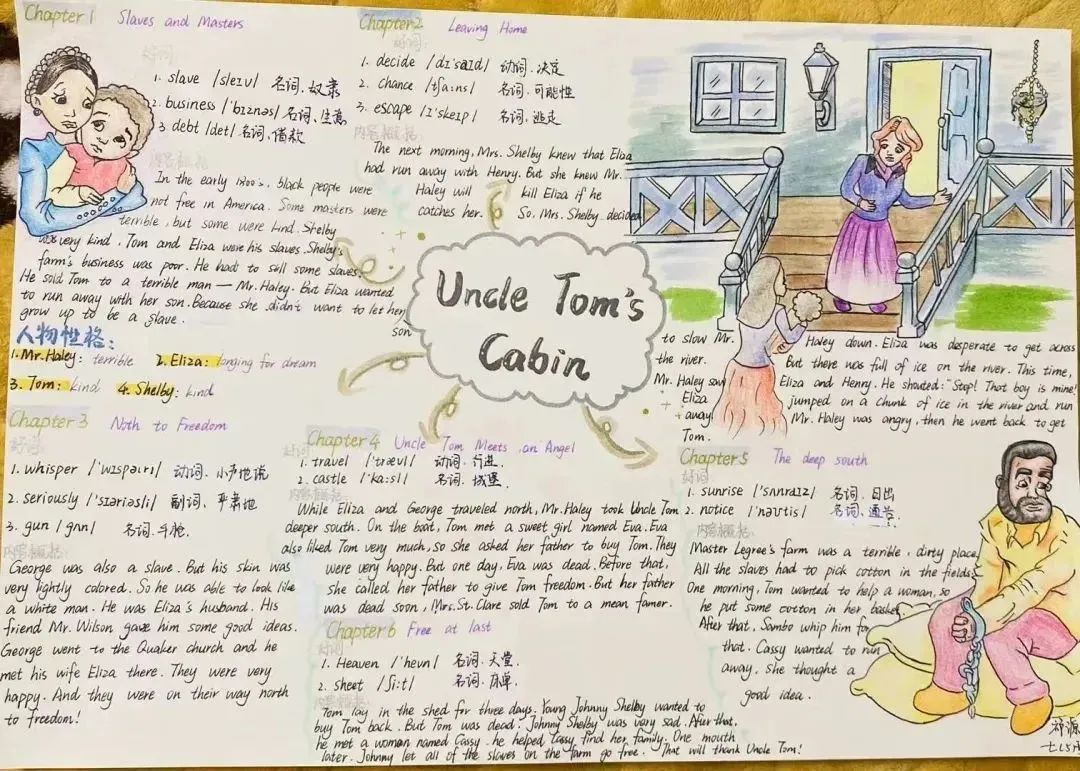 Chapter 1 Slaves and Masters
好词:
1. slave /sleɪv/ 名词、奴隶
2. business /'bɪznəs/ 名词、生意
3 debt /det/ 名词、借款
内容概括:
In the early 1800's, black people were
not free in America. Some masters were
terrible, but some were kind. Shelby
was very kind. Tom and Eliza were his slaves. Shelby's
farm's business was poor. He had to sell some slaves.
He sold Tom to a terrible man — Mr. Haley. But Eliza wanted
to run away with her son. Because she didn't want to let her
son
grow up to be a slave.
人物性格:
1. Mr. Haley: terrible 2. Eliza: longing for dream
3. Tom: kind 4. Shelby: kind
Chapter 2 Leaving Home
好词:
1. decide /dɪ'saɪd/ 动词、决定
2. chance /tʃɑ:ns/ 名词、可能性
3. escape /ɪ'skeɪp/ 名词、逃走
内容概括:
The next morning, Mrs. Shelby knew that Eliza
had run away with Henry. But she knew Mr.
Haley will kill Eliza if he
catches her. So, Mrs. Shelby decided
to slow Mr. Haley down. Eliza was desperate to get across
the river. But there was full of ice on the river. This time,
Mr. Haley saw Eliza and Henry. He shouted: "Stop! That boy is mine!
Eliza jumped on a chunk of ice in the river and run
away! Mr. Haley was angry, then he went back to get
Tom.
Uncle Tom's
Cabin
Chapter 3 Noth to Freedom
好词:
1. whisper /'wɪspə(r)/ 动词、小声地说
2. seriously /'sɪəriəsli/ 副词、严肃地
3. gun /gʌn/ 名词、手枪
内容概括:
George was also a slave. But his skin was
very lightly colored. So he was able to look like
a white man. He was Eliza's husband. His
friend Mr. Wilson gave him some good ideas.
George went to the Quaker church and he
met his wife Eliza there. They were very
happy. And they were on their way north
to freedom!
Chapter 4 Uncle Tom Meets an Angel
好词:
1. travel /'trævl/ 动词、行进
2. castle /'kɑ:sl/ 名词、城堡
内容概括:
While Eliza and George traveled north, Mr. Haley took Uncle Tom
deeper south. On the boat, Tom met a sweet girl named Eva. Eva
also liked Tom very much, so she asked her father to buy Tom. They
were very happy. But one day, Eva was dead. Before that,
she called her father to give Tom freedom. But her father
was dead soon, Mrs. St. Clare sold Tom to a mean famer.
Chapter 5 The deep south
好词
1. sunrise /'sʌnraɪz/ 名词、日出
2. notice /'nəʊtis/ 名词、通告
内容概括:
Master Legree's farm was a terrible, dirty place.
All the slaves had to pick cotton in the fields.
One morning, Tom wanted to help a woman, so
he put some cotton in her basket.
After that, Sambo whip him for
that. Cassy wanted to run
away. she thought a
good idea.
Chapter 6 Free at last
好词
1. Heaven /'hevn/ 名词、天堂
2. sheet /ʃi:t/ 名词、床单
内容概括:
Tom lay in the shed for three days. Young Johnny Shelby wanted to
buy Tom back. But Tom was dead. Johnny Shelby was very sad. After that,
he met a woman named Cassy. he helped Cassy find her family. One mouth
later. Johnny let all of the slaves on the farm go free. That will thank Uncle Tom!